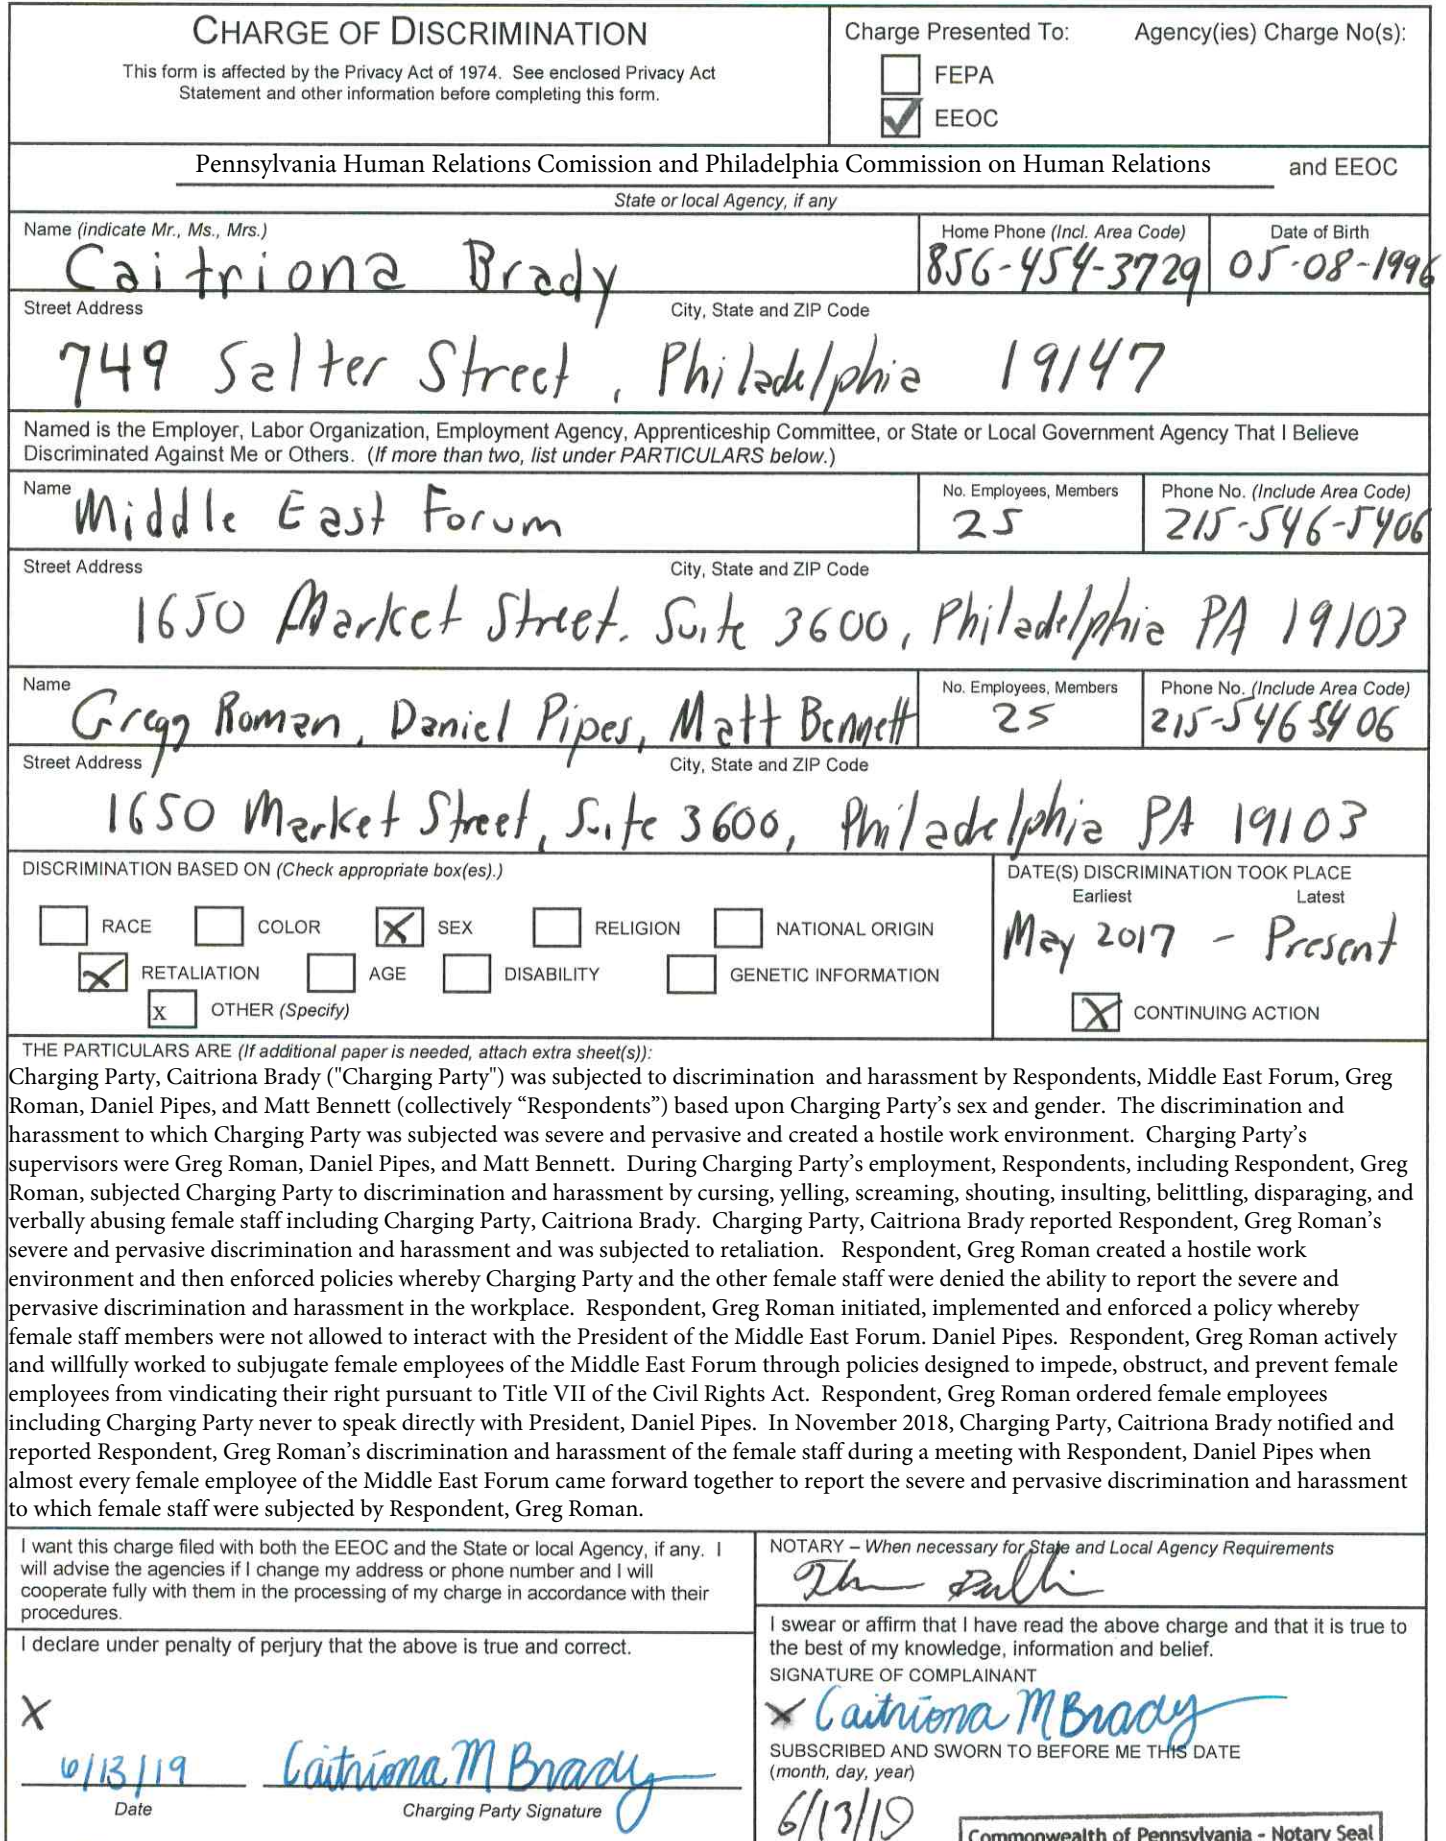 CHARGE OF DISCRIMINATION
This form is affected by the Privacy Act of 1974. See enclosed Privacy Act
Statement and other information before completing this form.
Charge Presented To: Agency(ies) Charge No(s):
FEPA
EEOC
Pennsylvania Human Relations Comission and Philadelphia Commission on Human Relations and EEOC
State or local Agency, if any
Name (indicate Mr., Ms., Mrs.) Home Phone (Incl. Area Code) Date of Birth
Caitriona Brady 856-454-3729 05-08-1996
Street Address City, State and ZIP Code
749 Salter Street, Philadelphia 19147
Named is the Employer, Labor Organization, Employment Agency, Apprenticeship Committee, or State or Local Government Agency That I Believe
Discriminated Against Me or Others. (If more than two, list under PARTICULARS below.)
Name No. Employees, Members Phone No. (Include Area Code)
Middle East Forum 25 215-546-5406
Street Address City, State and ZIP Code
1650 Market Street. Suite 3600, Philadelphia PA 19103
Name No. Employees, Members Phone No. (Include Area Code)
Gregg Roman, Daniel Pipes, Matt Bennett 25 215-546 5406
Street Address City, State and ZIP Code
1650 Market Street, Suite 3600, Philadelphia PA 19103
DISCRIMINATION BASED ON (Check appropriate box(es).) DATE(S) DISCRIMINATION TOOK PLACE
Earliest Latest
RACE COLOR X SEX RELIGION NATIONAL ORIGIN May 2017 - Present
X RETALIATION AGE DISABILITY GENETIC INFORMATION
x OTHER (Specify) X CONTINUING ACTION
THE PARTICULARS ARE (If additional paper is needed, attach extra sheet(s)):
Charging Party, Caitriona Brady ("Charging Party") was subjected to discrimination and harassment by Respondents, Middle East Forum, Greg
Roman, Daniel Pipes, and Matt Bennett (collectively “Respondents”) based upon Charging Party’s sex and gender. The discrimination and
harassment to which Charging Party was subjected was severe and pervasive and created a hostile work environment. Charging Party’s
supervisors were Greg Roman, Daniel Pipes, and Matt Bennett. During Charging Party’s employment, Respondents, including Respondent, Greg
Roman, subjected Charging Party to discrimination and harassment by cursing, yelling, screaming, shouting, insulting, belittling, disparaging, and
verbally abusing female staff including Charging Party, Caitriona Brady. Charging Party, Caitriona Brady reported Respondent, Greg Roman’s
severe and pervasive discrimination and harassment and was subjected to retaliation. Respondent, Greg Roman created a hostile work
environment and then enforced policies whereby Charging Party and the other female staff were denied the ability to report the severe and
pervasive discrimination and harassment in the workplace. Respondent, Greg Roman initiated, implemented and enforced a policy whereby
female staff members were not allowed to interact with the President of the Middle East Forum. Daniel Pipes. Respondent, Greg Roman actively
and willfully worked to subjugate female employees of the Middle East Forum through policies designed to impede, obstruct, and prevent female
employees from vindicating their right pursuant to Title VII of the Civil Rights Act. Respondent, Greg Roman ordered female employees
including Charging Party never to speak directly with President, Daniel Pipes. In November 2018, Charging Party, Caitriona Brady notified and
reported Respondent, Greg Roman’s discrimination and harassment of the female staff during a meeting with Respondent, Daniel Pipes when
almost every female employee of the Middle East Forum came forward together to report the severe and pervasive discrimination and harassment
to which female staff were subjected by Respondent, Greg Roman.
I want this charge filed with both the EEOC and the State or local Agency, if any. I
will advise the agencies if I change my address or phone number and I will
cooperate fully with them in the processing of my charge in accordance with their
procedures.
I declare under penalty of perjury that the above is true and correct.
X
6/13/19 Caitriona M Brady
Date Charging Party Signature
NOTARY – When necessary for State and Local Agency Requirements
I swear or affirm that I have read the above charge and that it is true to
the best of my knowledge, information and belief.
SIGNATURE OF COMPLAINANT
X Caitriona M Brady
SUBSCRIBED AND SWORN TO BEFORE ME THIS DATE
(month, day, year)
6/13/19
Commonwealth of Pennsylvania - Notary Seal